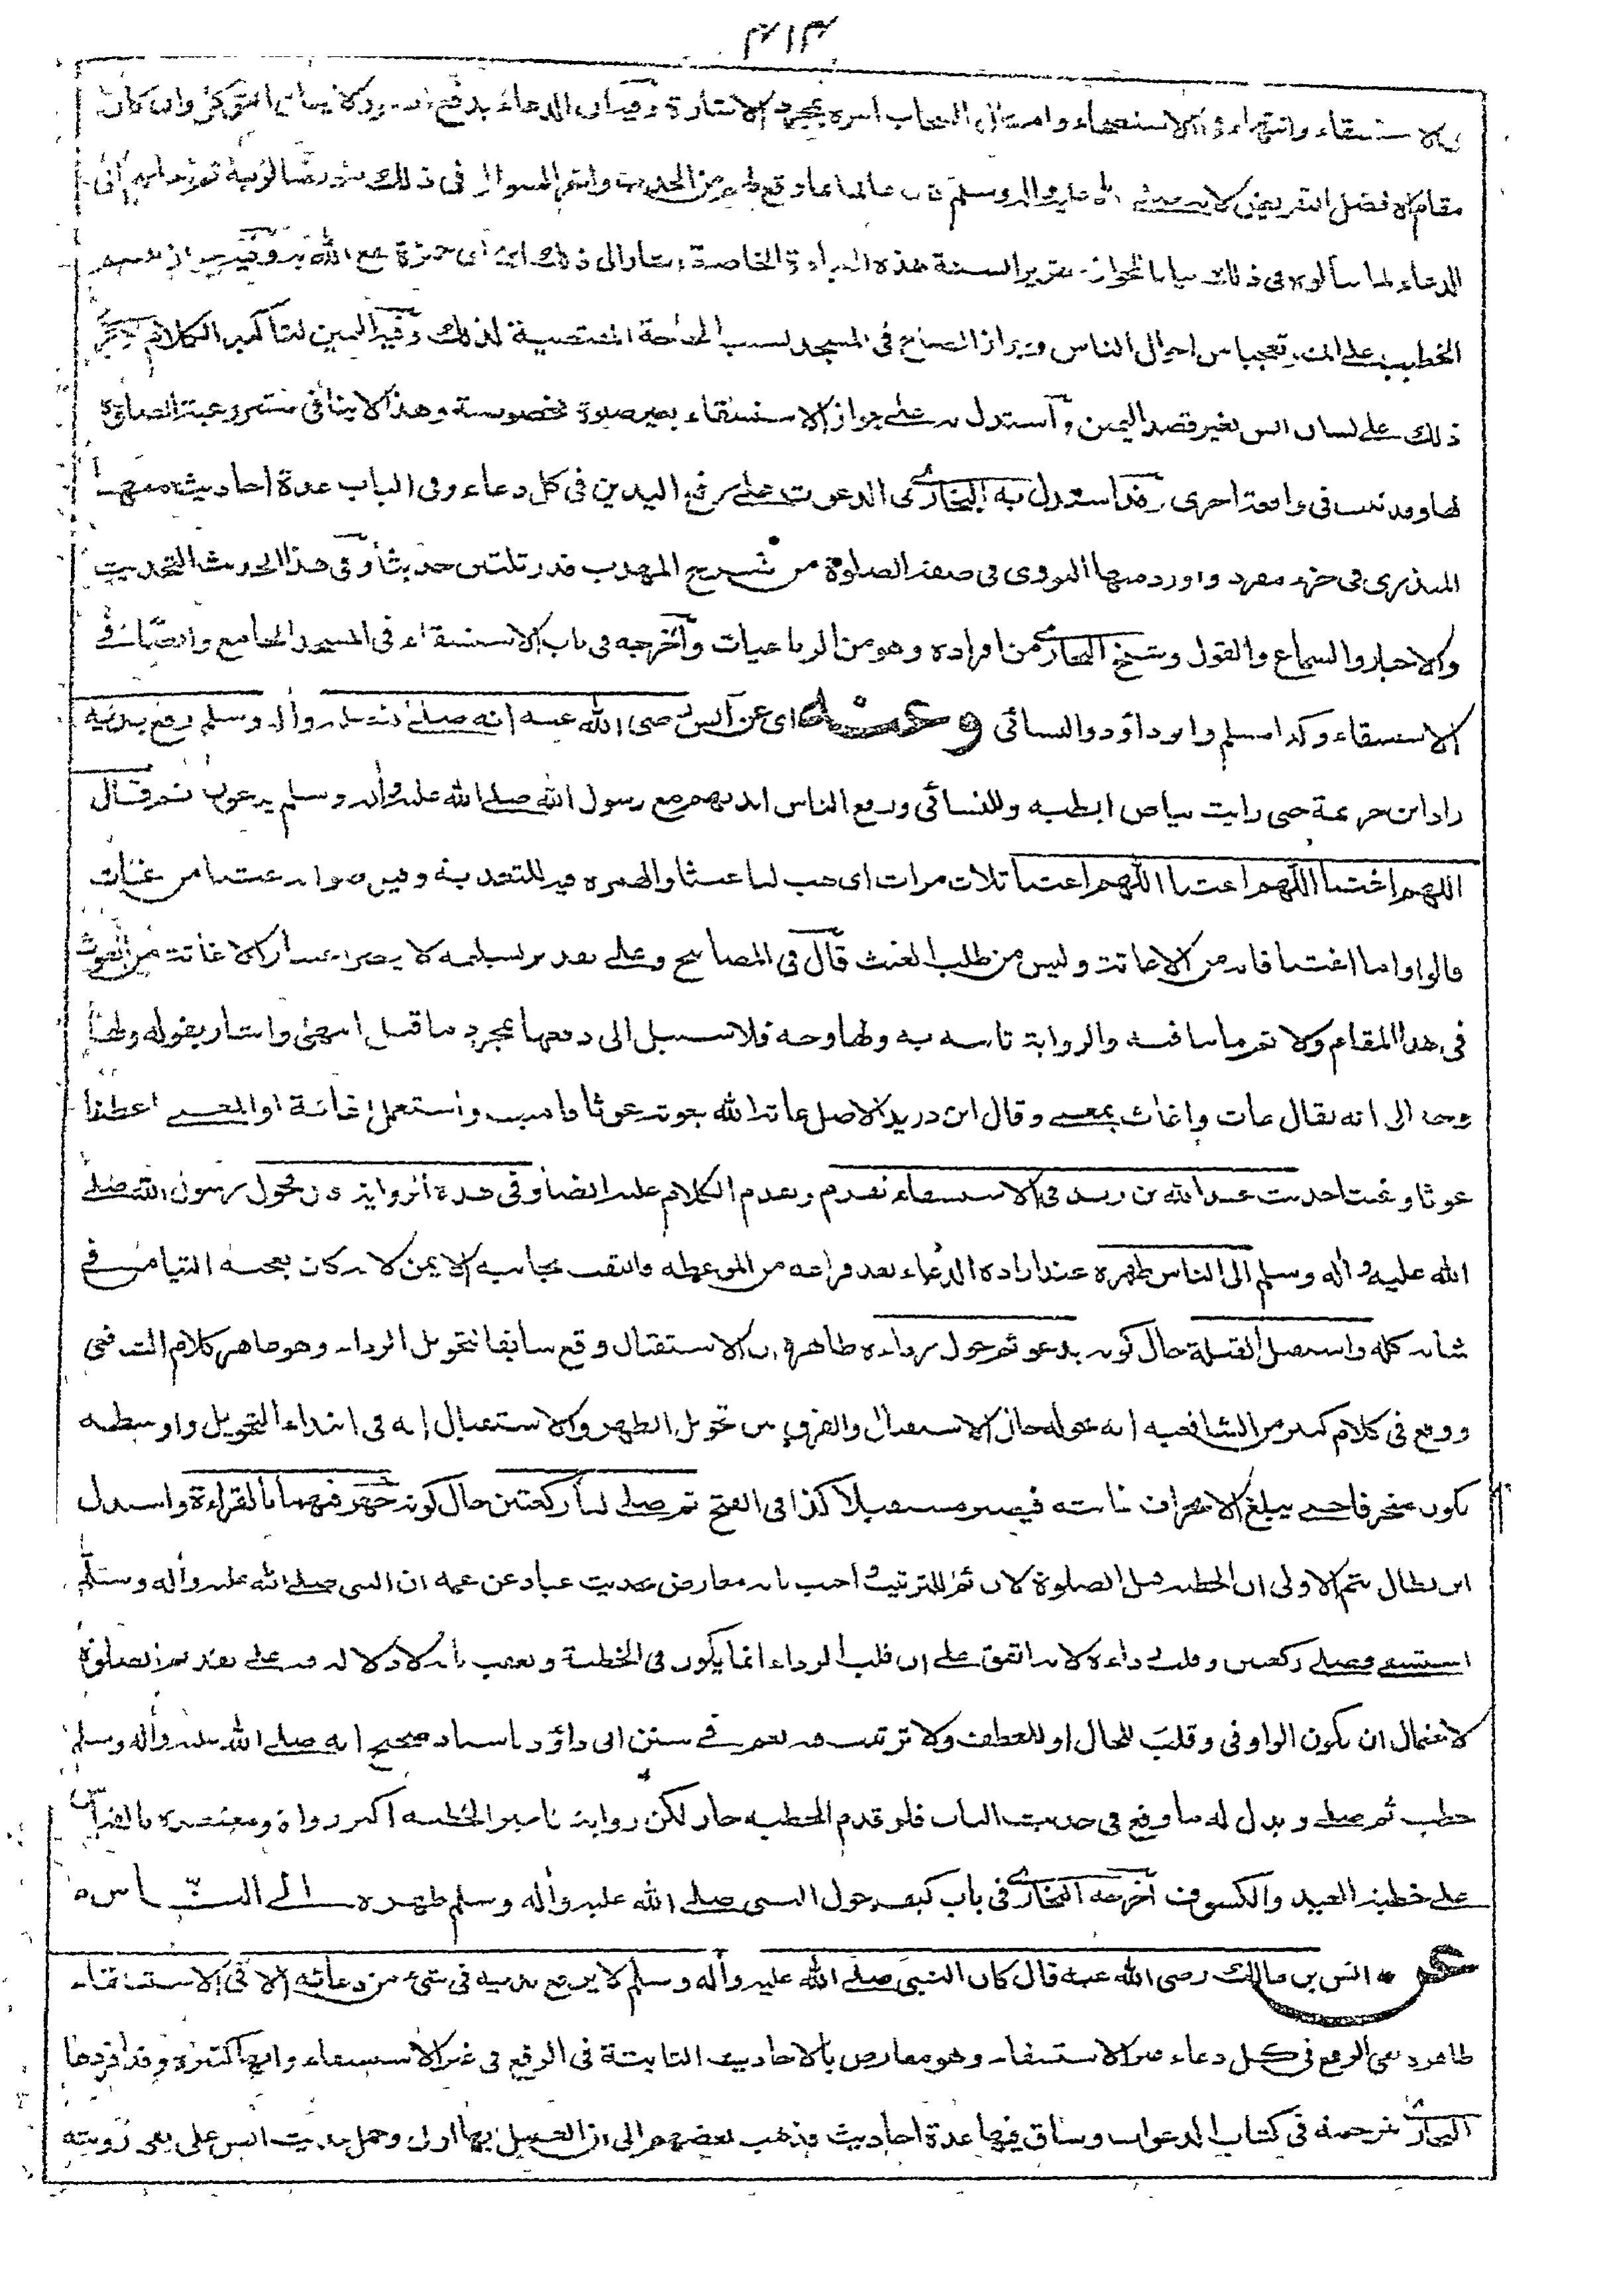 ٤١٣
الاستسقاء وانتهاءه فى الاستصحاء وامتثال السحاب امره بمجرد الاشارة وفيه ان الدعاء بدفع الضرر لا ينافى التوكل وان كان
مقام الافضل التفويض لانه صلى الله عليه واله وسلم كان عالما بما وقع لهم من الجدب واخر السوال فى ذلك تفويضا لربه ثم اجابهم الى
الدعاء لما سألوه فى ذلك بيانا للجواز وتقرير السنة هذه العبادة الخاصة اشار الى ذلك ابن ابى جمرة نفع الله به وفيه جواز تبسم
الخطيب على المنبر تعجبا من احوال الناس وجواز الصياح فى المسجد لسبب الحاجة المقتضية لذلك وفيه اليمين لتاكيد الكلام
ذلك على لسان انس بغير قصد اليمين واستدل به على جواز الاستسقاء بغير صلوة مخصوصة وهذا لا ينافى مشروعية الصلوة
لها وقد ثبت فى واقعة اخرى وقد استدل به البخارى فى الدعوت على رفع اليدين فى كل دعاء وفى الباب عدة احاديث جمعها
المنذرى فى جزء مفرد واورد منها النووى فى صفة الصلوة من شرح المهذب قدر ثلثين حديثا وفى هذا الحديث التحديث
والاخبار والسماع والقول وشيخ البخارى من افراده وهو من الرباعيات واخرجه فى باب الاستسقاء فى المسجد الجامع وايضا فى
الاستسقاء وكذا مسلم وابو داؤد والنسائى وعنه اى عن انس رضى الله عنه انه صلى الله عليه واله وسلم رفع يديه
زاد ابن خزيمة حتى رايت بياض ابطيه وللنسائى ورفع الناس ايديهم مع رسول الله صلى الله عليه واله وسلم يدعون ثم قال
اللهم اغثنا اللهم اغثنا اللهم اغثنا ثلاث مرات اى هب لنا غيثا والهمزة فيه للتعدية وقيل صوابه غثنا من غاث
قالوا واما اغثنا فانه من الاغاثة وليس من طلب الغيث قال فى المصابيح وعلى تقدير تسليمه لا يضر اعتبار الاغاثة من الغوث
فى هذا المقام ولا ثم ما ينافيه والرواية ثابتة به ولها وجه فلا سبيل الى دفعها بمجرد ما قيل انتهى واشار بقوله ولها
وجه الى انه يقال غاث واغاث بمعنى وقال ابن دريد الاصل غاثه الله يغوثه غوثا فاميت واستعمل اغاثة او المعنى اعطنا
غوثا وغيثا حديث عبد الله بن زيد فى الاستسقاء تقدم وتقدم الكلام عليه ايضا وفى هذه الرواية قال فحول رسول الله صلى
الله عليه واله وسلم الى الناس ظهره عند ارادة الدعاء بعد فراغه من الموعظة فالتفت بجانبه الايمن لانه كان يعجبه التيامن فى
شانه كله واستقبل القبلة حال كونه يدعو ثم حول رداءه ظاهره ان الاستقبال وقع سابقا لتحويل الرداء وهو ظاهر كلام الشافعى
ووقع فى كلام كثير من الشافعية انه يحوله حال الاستقبال والفرق بين تحويل الظهر والاستقبال انه فى ابتداء التحويل واوسطه
يكون منحرفا حتى يبلغ الانحراف غايته فيصير مستقبلا كذا فى الفتح ثم صلى لنا ركعتين حال كونه جهر فيهما بالقراءة واستدل
ابن بطال بثم الاولى ان الخطبة قبل الصلوة لان ثم للترتيب واجيب بانه معارض بحديث عباد عن عمه ان النبى صلى الله عليه واله وسلم
استسقى فصلى ركعتين وقلب رداءه لانه اتفق على ان قلب الرداء انما يكون فى الخطبة وتعقب بانه لا دلالة فيه على تقديم الصلوة
لاحتمال ان يكون الواو فى وقلب للحال او للعطف ولا ترتيب فيه نعم فى سنن ابى داؤد باسناد صحيح انه صلى الله عليه واله وسلم
خطب ثم صلى ويدل له ما وقع فى حديث الباب فلو قدم الخطبة جاز لكن رواية تاخير الخطبة اكثر رواة ومعتضدة بالقياس
على خطبة العيد والكسوف اخرجه البخارى فى باب كيف حول النبى صلى الله عليه واله وسلم ظهره الى الناس ه
عن انس بن مالك رضى الله عنه قال كان النبى صلى الله عليه واله وسلم لا يرفع يديه فى شئ من دعائه الا فى الاستسقاء
ظاهره نفى الرفع فى كل دعاء غير الاستسقاء وهو معارض بالاحاديث الثابتة فى الرفع فى غير الاستسقاء وانها كثيرة وقد افردها
البخارى بترجمة فى كتاب الدعوات وساق فيها عدة احاديث فذهب بعضهم الى ان العمل بها اولى وحمل حديث انس على نفى رويته